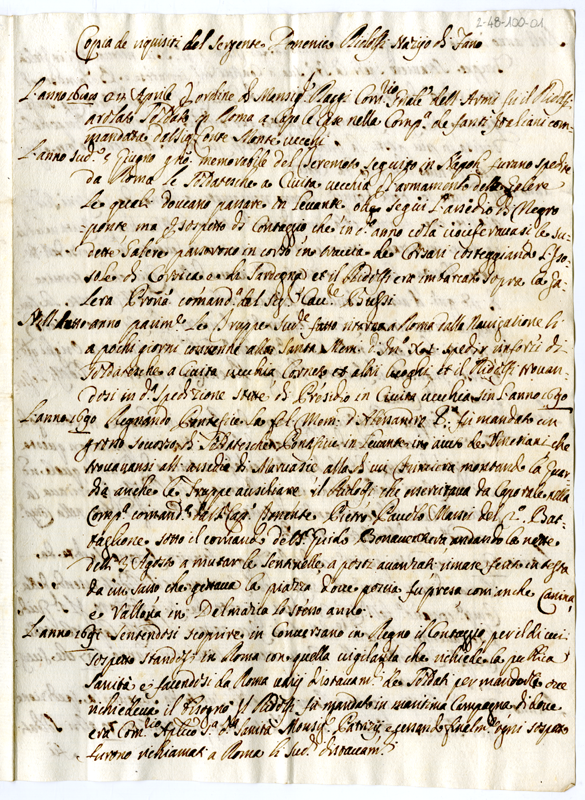 2-48-100-01
Copia de riquisiti del Sergente Domenico Ridolfi Nazijo di Fano
L'anno 1688 a 27 Aprile d'ordine di Monsigr
arolato Soldato in Roma a Capo le Case nella Compa. de fanti Italiani com-
mandata dal Sig. Conte Monte vecchi.
L'anno Sudo. 5 Giugno memorabile del teremoto seguito in Napoli furano spedite
da Roma le Soldatesche a Civita vecchia armamento delle Galere
le quali doveano passare in levante ove segui l'assedio di Negro
=ponte ma sospetto di Contaggio che in do. anno colà le su
dette Galere passorono in corso in traccia de Corsari costeggiando l'Iso
sole di Corsica e da Sardegna et il Ridolfi era imbarcato sopra la Ga
lera comanda. dal Sigr. Cavr. Bussi
Nell anno le Truppe Sude. fatto ritorno a Roma dalla Navigatione li
a pochi giorni convenne alla Santa Mem. d'Ino. XI. spedir rinforzi di
Soldatesche a Civita vecchia Corneto et altri luoghi et il Ridolfi trovan
dosi in da. spedizione stete di Presidio in Civita vecchia sin l'anno 1690
L'anno 1690 Regnando Pontefice la fel. Mem. d'Alesandro 8.º fù mandato un
grosso soccorso di Soldatesche Pontificie in Levante in aiuto de Venetiani che
trovavansi all'assedio di Malvasia allo montando la guar
dia anche le Truppe ausiliarie il Ridolfi che esercitava da Caporale nella
Compa. comanda. dal Capo. Tenente Pietro Pavolo Mauri del 2.º Bat-
taglione sotto il comando del Co. Guido Bonaventura andando la notte
delli 3 Agosto a mutar le sentinelle a posti avanzati rimase ferito in testa
da un sasso che gettava la piazza dove poscia fù presa com'anche Canina
e Vallona in Delmazia lo stesso anno.
L'anno 1691 Sentendosi scoprire in Conversano in Regno il Contaggio per il di cui
sospetto standosi in Roma con quella vigilanza che richiede la publica
Sanità e facendosi da Roma varij distaccami. de Soldati per mandarli ove
richiedeva il bisogno il Ridolfi fù mandato in maritima Campagna di dove
era Comrio. Aplico. Sa. da. Sanità Monsigr. Patrizij e cessando finalme. ogni sospetto
furono richiamati a Roma li Sudi. distaccami.